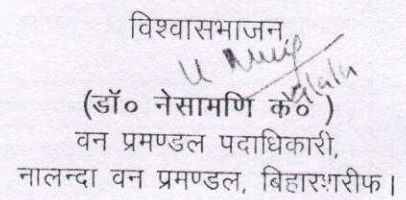 विश्वासभाजन,
(डॉ० नेसामणि के० )
वन प्रमण्डल पदाधिकारी,
नालन्दा वन प्रमण्डल, बिहारशरीफ।